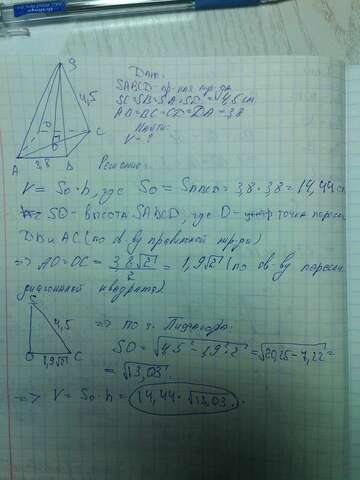 S
4,5
D
C
O
A
3,8
B
Дано:
SABCD пр. пир.
SC=SB=SA=SD=4,5 см
AB=BC=CD=DA=3,8
Найти:
V-?
Решение:
V = So·h, где So = SABCD = 3,8·3,8 = 14,44
SO - высота SABCD, где O - точка
DB и AC (по св-ву правильной пир-ды)
=> AO=OC= 3,8√2 / 2 = 1,9√2 (по св-ву
диагоналей квадрата)
S
4,5
O
1,9√2
C
=> по т. Пифагора:
SO = √4,5² - 1,9²·2 = √20,25 - 7,22 =
= √13,03
=> V = So·h = 14,44·√13,03